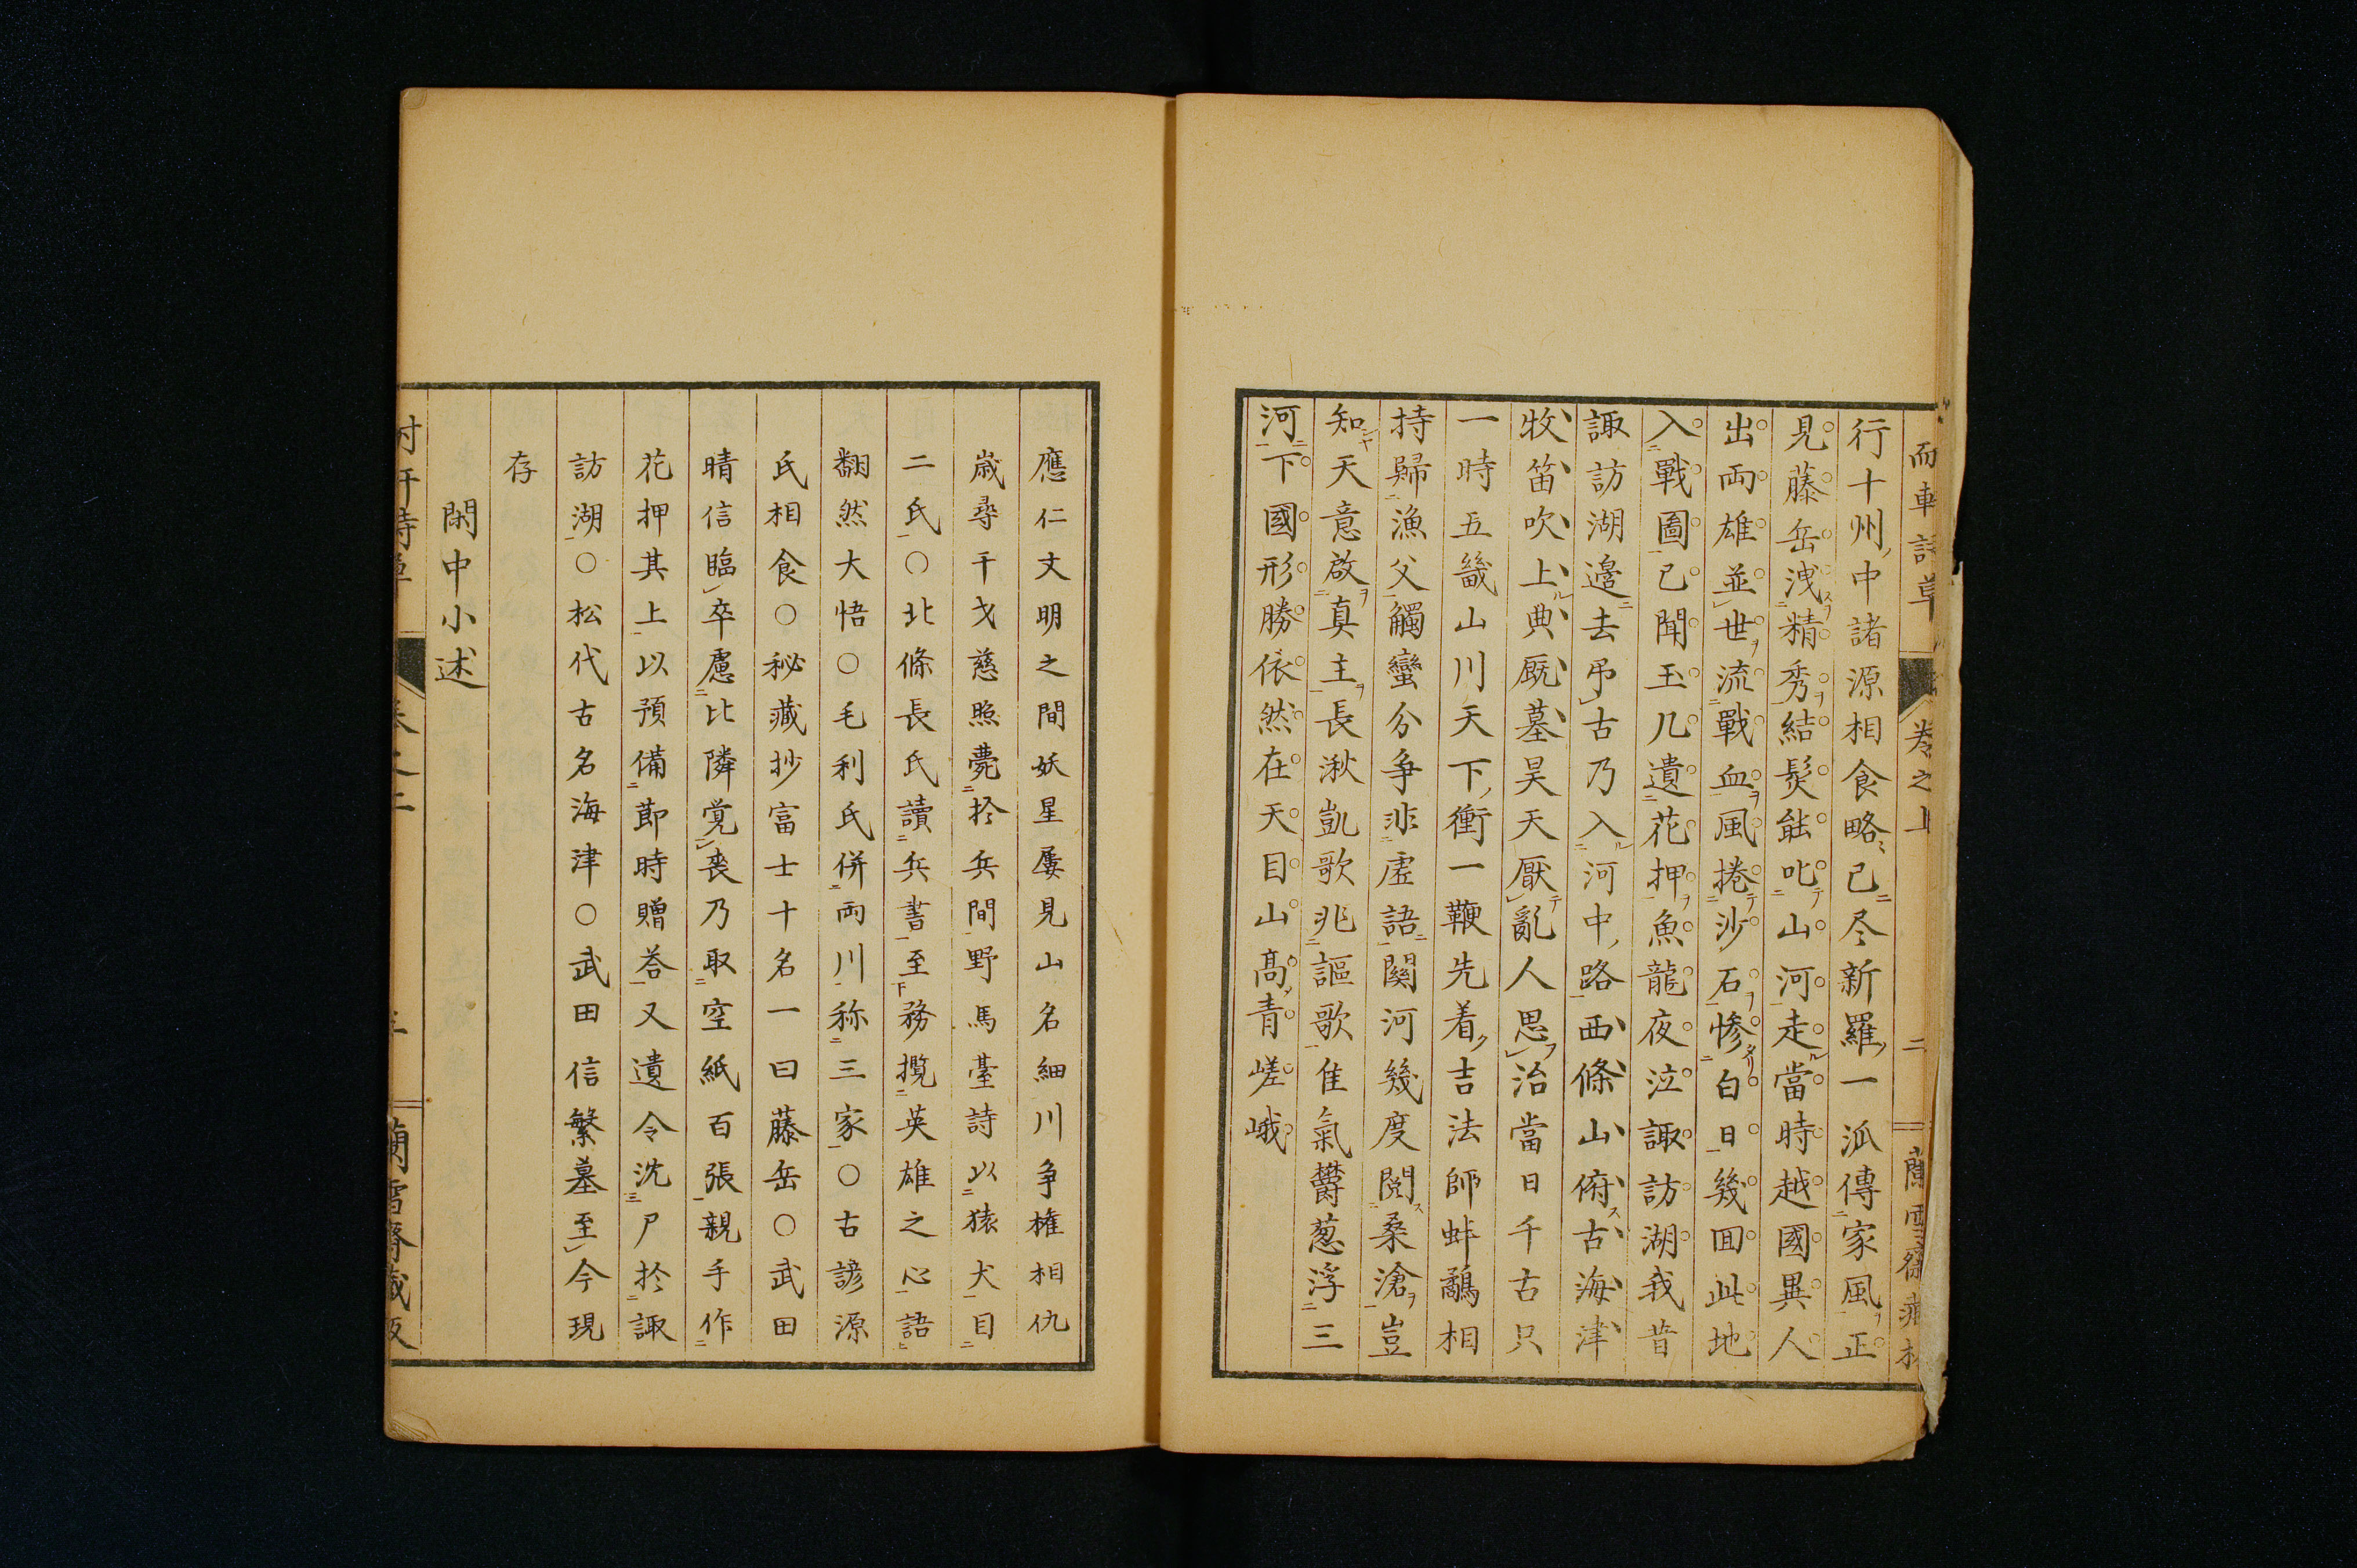 行十州中諸源相食略已尽新羅一派傳家風正
見藤岳洩精秀結髪能叱山河走當時越國異人
出両雄並世流戰血風捲沙石惨白日幾回此地
入戰圖已聞玉几遺花押魚龍夜泣諏訪湖我昔
諏訪湖邉去弔古乃入河中路西條山俯古海津
牧笛吹上典厩墓昊天厭亂人思治當日千古只
一時五畿山川天下衝一鞭先着吉法師蚌鷸相
持歸漁父觸蠻分争非虚語関河幾度閲桑滄豈
知天意啟真主長湫凱歌兆謳歌佳氣欝葱浮三
河下國形勝依然在天目山高青嵯峨
應仁文明之間妖星屡見山名細川争権相仇
歳尋干戈慈照薨於兵間野馬臺詩以猿犬目
二氏○北條長氏讀兵書至務攬英雄之心語
翻然大悟○毛利氏併両川称三家○古諺源
氏相食○秘藏抄富士十名一曰藤岳○武田
晴信臨卒慮比隣覚喪乃取空紙百張親手作
花押其上以預備節時贈答又遺令沈尸於諏
訪湖○松代古名海津○武田信繁墓至今現
存
閑中小述